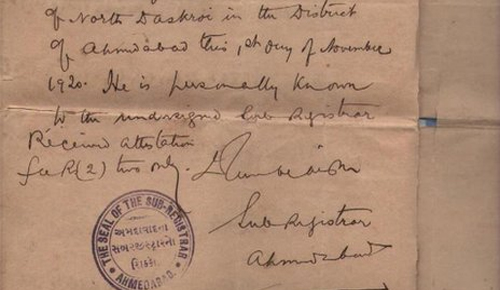 of North Daskroi in the District
of Ahmedabad this 1st day of November
1920. He is personally known
to the undersigned Sub Registrar
Received attestation
fee R(2) two only.
Sub Registrar
Ahmedabad
THE SEAL OF THE SUB-REGISTRAR
અમદાવાદના
સબરજીસ્ટ્રારનો
સિક્કો
AHMEDABAD.